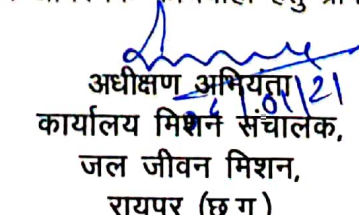 हेतु
अधीक्षण अभियंता
01/21
कार्यालय मिशन संचालक,
जल जीवन मिशन,
रायपुर (छ.ग.)